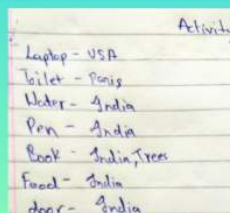 Activity
Laptop - USA
Toilet - Paris
Water - India
Pen - India
Book - India, Trees
Food - India
door - India